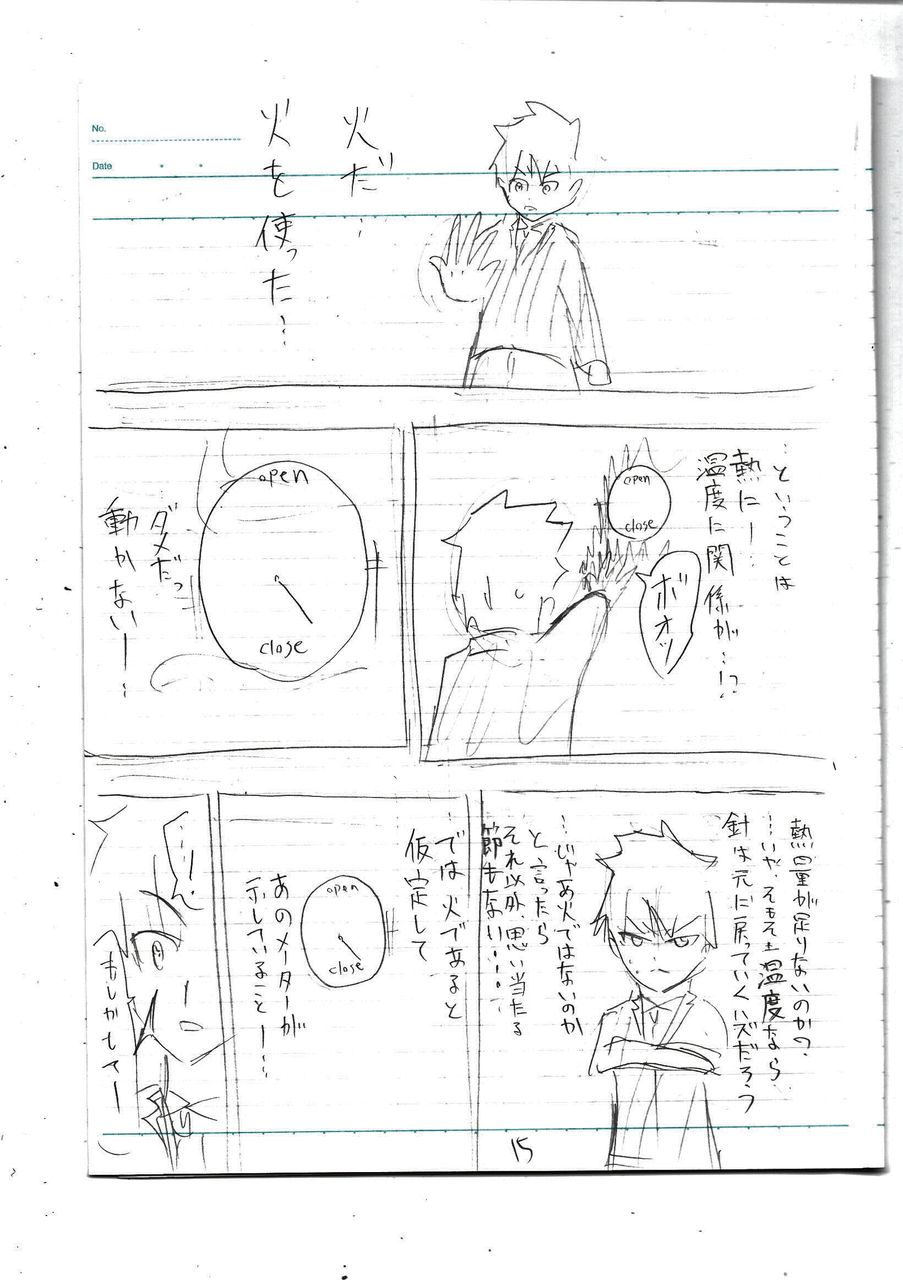 No.
Date
火だ…
火を使った…
…ということは
熱に…
温度に関係が…!?
open
close
ボオッ
open
close
ダメだっ
動かない…
熱量が足りないのか?
…いや、そもそも温度なら
針は元に戻っていくハズだろう
…じゃあ火ではないのか
と言ったら
それ以外、思い当たる
節もない…
では火であると
仮定して
open
close
あのメーターが
示していること…
…!
もしかして…
15